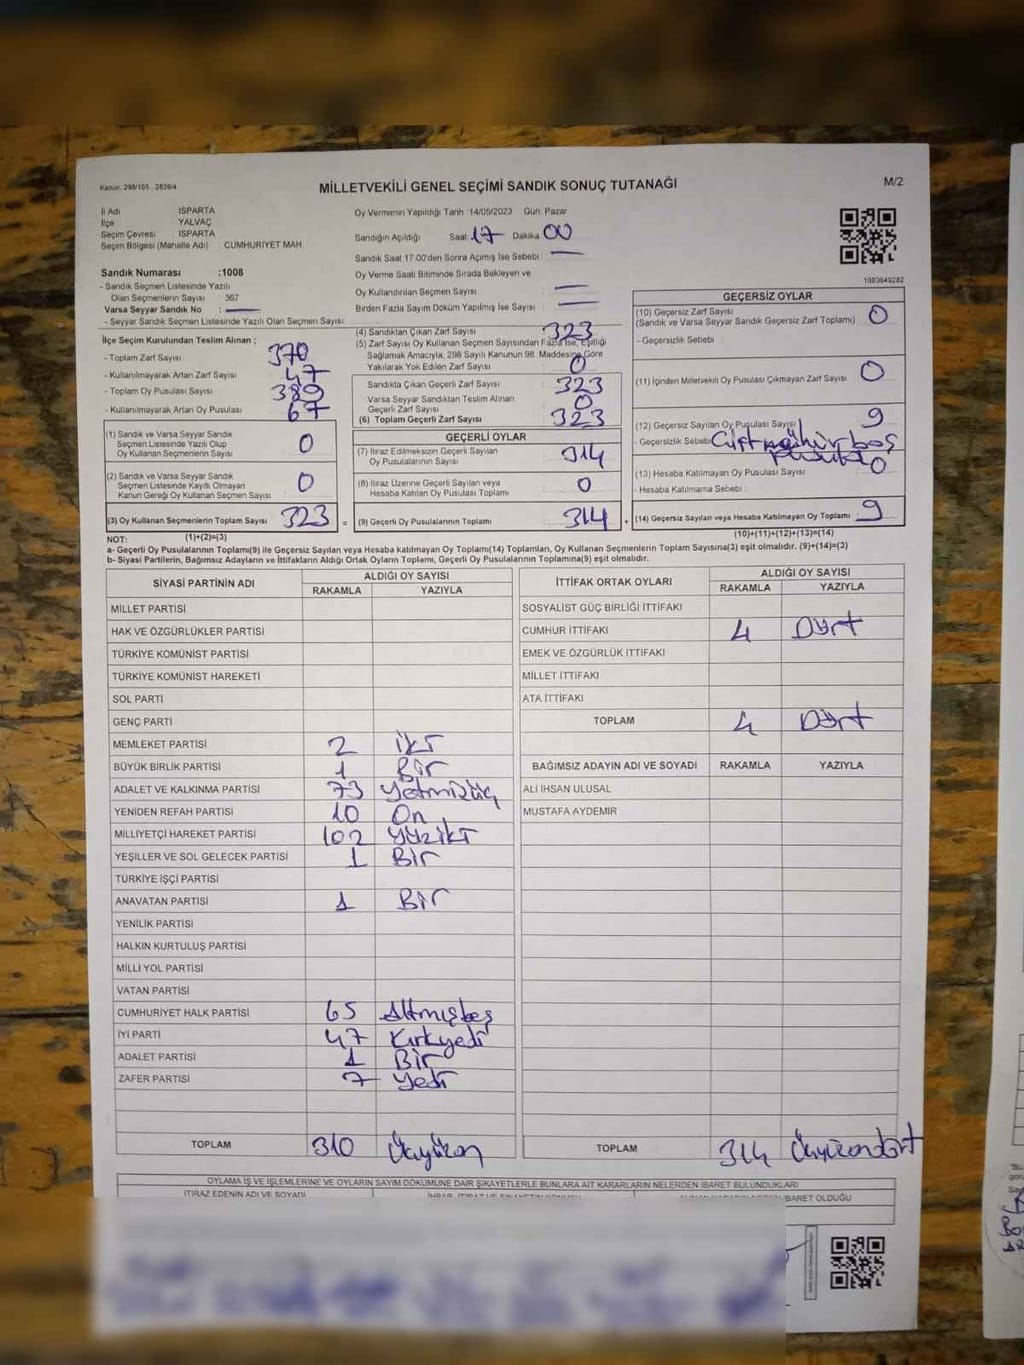 Kanun: 298/105 , 2839/4
MİLLETVEKİLİ GENEL SEÇİMİ SANDIK SONUÇ TUTANAĞI
M/2
İl Adı ISPARTA
İlçe YALVAÇ
Seçim Çevresi : ISPARTA
Seçim Bölgesi (Mahalle Adı) : CUMHURİYET MAH.
Oy Vermenin Yapıldığı Tarih :14/05/2023 Gün: Pazar
Sandığın Açıldığı Saat: 17 Dakika 00
Sandık Saat 17:00'den Sonra Açılmış İse Sebebi : —
Oy Verme Saati Bitiminde Sırada Bekleyen ve
Oy Kullandırılan Seçmen Sayısı : —
Birden Fazla Sayım Döküm Yapılmış İse Sayısı : —
1093649282
Sandık Numarası :1008
- Sandık Seçmen Listesinde Yazılı
Olan Seçmenlerin Sayısı : 367
Varsa Seyyar Sandık No : —
- Seyyar Sandık Seçmen Listesinde Yazılı Olan Seçmen Sayısı:
İlçe Seçim Kurulundan Teslim Alınan ;
- Toplam Zarf Sayısı 370
- Kullanılmayarak Artan Zarf Sayısı 47
- Toplam Oy Pusulası Sayısı
- Kullanılmayarak Artan Oy Pusulası 67
(1) Sandık ve Varsa Seyyar Sandık
Seçmen Listesinde Yazılı Olup
Oy Kullanan Seçmenlerin Sayısı 0
(2) Sandık ve Varsa Seyyar Sandık
Seçmen Listesinde Kayıtlı Olmayan
Kanun Gereği Oy Kullanan Seçmen Sayısı 0
(3) Oy Kullanan Seçmenlerin Toplam Sayısı 323
(4) Sandıktan Çıkan Zarf Sayısı 323
(5) Zarf Sayısı Oy Kullanan Seçmen Sayısından Fazla İse, Eşitliği
Sağlamak Amacıyla, 298 Sayılı Kanunun 98. Maddesine Göre
Yakılarak Yok Edilen Zarf Sayısı 0
Sandıkta Çıkan Geçerli Zarf Sayısı 323
Varsa Seyyar Sandıktan Teslim Alınan
Geçerli Zarf Sayısı 0
(6) Toplam Geçerli Zarf Sayısı 323
GEÇERLİ OYLAR
(7) İtiraz Edilmeksizin Geçerli Sayılan
Oy Pusulalarının Sayısı 314
(8) İtiraz Üzerine Geçerli Sayılan veya
Hesaba Katılan Oy Pusulası Toplamı 0
= (9) Geçerli Oy Pusulalarının Toplamı 314
GEÇERSİZ OYLAR
(10) Geçersiz Zarf Sayısı
(Sandık ve Varsa Seyyar Sandık Geçersiz Zarf Toplamı) 0
- Geçersizlik Sebebi :
(11) İçinden Milletvekili Oy Pusulası Çıkmayan Zarf Sayısı 0
(12) Geçersiz Sayılan Oy Pusulası Sayısı 9
- Geçersizlik Sebebi Çift mühür boş
pusula
(13) Hesaba Katılmayan Oy Pusulası Sayısı 0
- Hesaba Katılmama Sebebi :
+ (14) Geçersiz Sayılan veya Hesaba Katılmayan Oy Toplamı 9
NOT: (1)+(2)=(3)
(10)+(11)+(12)+(13)=(14)
a- Geçerli Oy Pusulalarının Toplamı(9) ile Geçersiz Sayılan veya Hesaba katılmayan Oy Toplamı(14) Toplamları, Oy Kullanan Seçmenlerin Toplam Sayısına(3) eşit olmalıdır. (9)+(14)=(3)
b- Siyasi Partilerin, Bağımsız Adayların ve İttifakların Aldığı Ortak Oyların Toplamı, Geçerli Oy Pusulalarının Toplamına(9) eşit olmalıdır.
SİYASİ PARTİNİN ADI ALDIĞI OY SAYISI
RAKAMLA YAZIYLA
MİLLET PARTİSİ
HAK VE ÖZGÜRLÜKLER PARTİSİ
TÜRKİYE KOMÜNİST PARTİSİ
TÜRKİYE KOMÜNİST HAREKETİ
SOL PARTİ
GENÇ PARTİ
MEMLEKET PARTİSİ 2 iki
BÜYÜK BİRLİK PARTİSİ 1 Bir
ADALET VE KALKINMA PARTİSİ 73 Yetmişüç
YENİDEN REFAH PARTİSİ 10 On
MİLLİYETÇİ HAREKET PARTİSİ 102 Yüziki
YEŞİLLER VE SOL GELECEK PARTİSİ 1 Bir
TÜRKİYE İŞÇİ PARTİSİ
ANAVATAN PARTİSİ 1 Bir
YENİLİK PARTİSİ
HALKIN KURTULUŞ PARTİSİ
MİLLİ YOL PARTİSİ
VATAN PARTİSİ
CUMHURİYET HALK PARTİSİ 65 Altmışbeş
İYİ PARTİ 47 Kırkyedi
ADALET PARTİSİ 1 Bir
ZAFER PARTİSİ 7 Yedi
TOPLAM 310 Üçyüzon
İTTİFAK ORTAK OYLARI ALDIĞI OY SAYISI
RAKAMLA YAZIYLA
SOSYALİST GÜÇ BİRLİĞİ İTTİFAKI
CUMHUR İTTİFAKI 4 Dört
EMEK VE ÖZGÜRLÜK İTTİFAKI
MİLLET İTTİFAKI
ATA İTTİFAKI
TOPLAM 4 Dört
BAĞIMSIZ ADAYIN ADI VE SOYADI RAKAMLA YAZIYLA
ALİ İHSAN ULUSAL
MUSTAFA AYDEMİR
TOPLAM 314 Üçyüzondört
OYLAMA İŞ VE İŞLEMLERİNE VE OYLARIN SAYIM DÖKÜMÜNE DAİR ŞİKAYETLERLE BUNLARA AİT KARARLARIN NELERDEN İBARET BULUNDUKLARI
İTİRAZ EDENİN ADI VE SOYADI
İBARET OLDUĞU